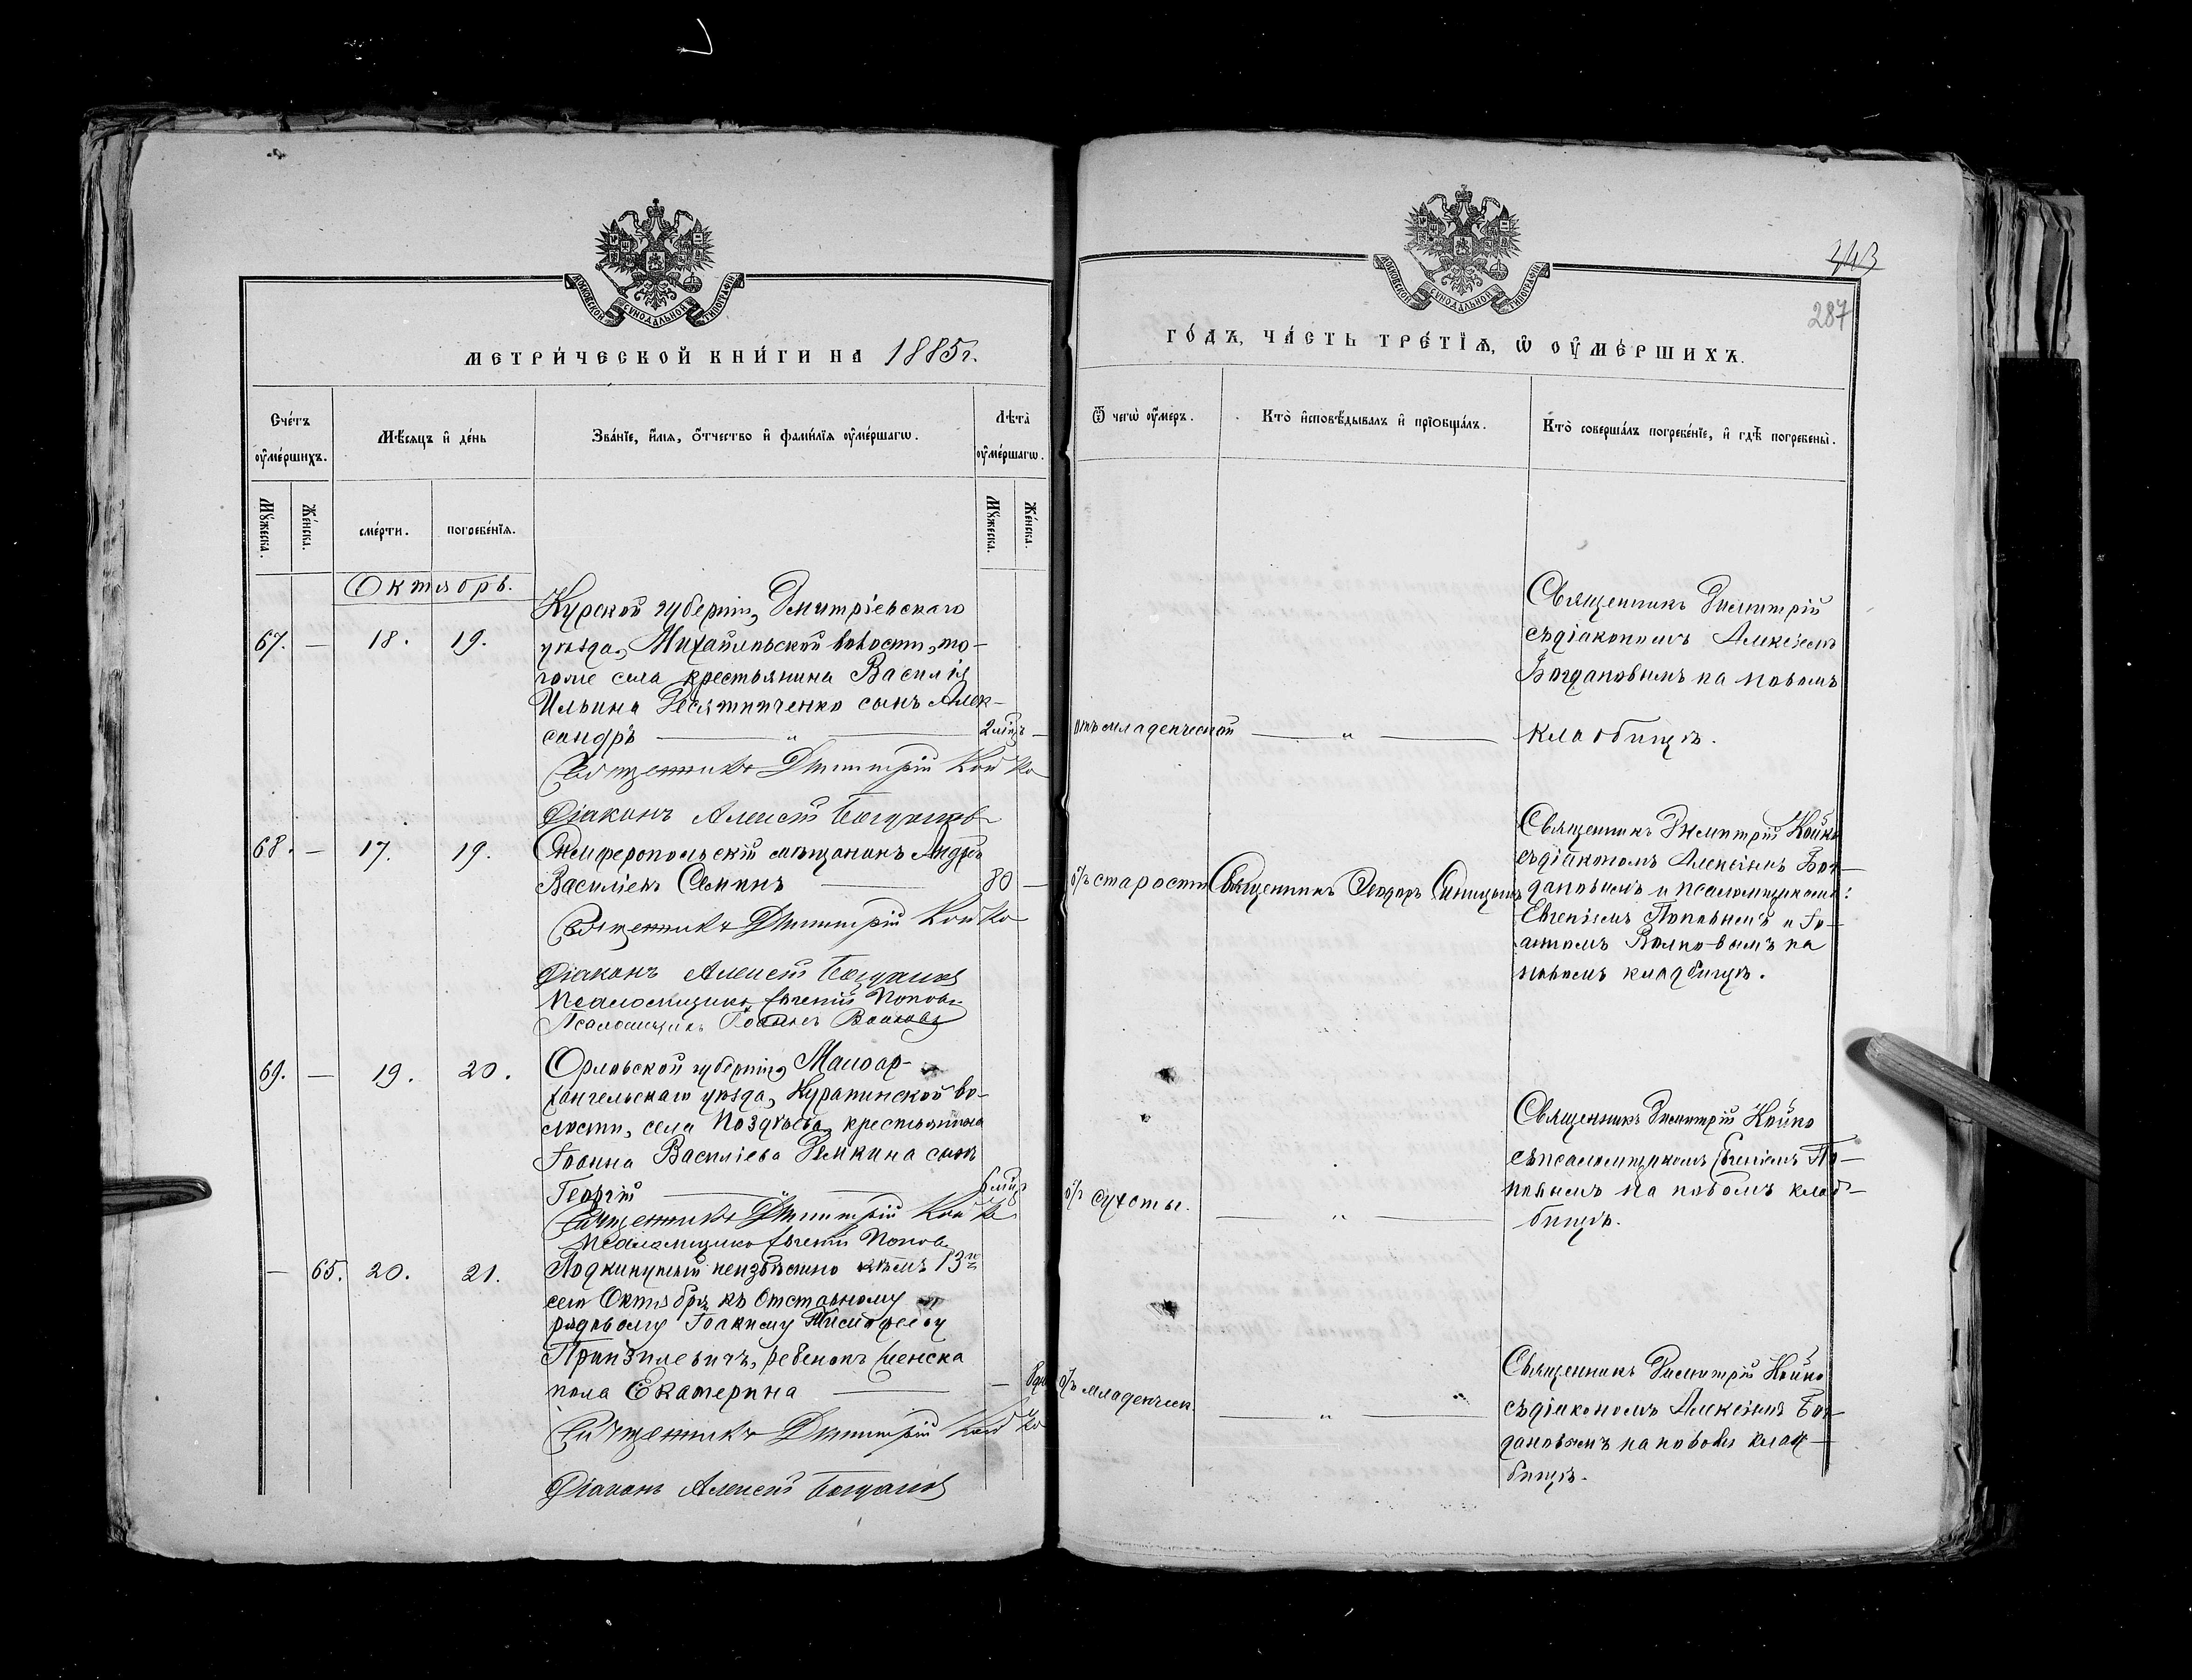 МОСКОВСКОЙ СѴНОДАЛЬНОЙ ТИПОГРАФІИ
МЕТРИ́ЧЕСКОЙ КНИ́ГИ НА 1885 г.
Сче́тъ ᲂу҆ме́ршихъ.
Мѣ́сяцъ и҆ де́нь
Зва́нїе, и҆́мѧ, ѻ҆́тчество и҆ фами́лїѧ ᲂу҆ме́ршагѡ.
Лѣ́та ᲂу҆ме́ршагѡ.
Мꙋ́жеска.
Же́нска.
сме́рти.
погребе́нїѧ.
Мꙋ́жеска.
Же́нска.
Октябрь.
67. — 18. 19.
Курской губерніи, Дмитріевскаго
уѣзда, Михайловской волости, то-
гоже села крестьянина Василія
Ильина Десятниченко сынъ Алек-
сандръ — „ — 2 мѣц —
Священникъ Димитрій Койко
Діаконъ Алексій Богданов
68. — 17. 19.
Симферопольскій мѣщанинъ Андрей
Василіевъ Семинъ — 80 —
Священникъ Димитрій Койко
Діаконъ Алексій Богданов
Псаломщикъ Евгеній Поповъ
Псаломщикъ Іоаннъ Волковъ
69. — 19. 20.
Орловской губерніи, Малоар-
хангельскаго уѣзда, Куракинской во-
лости, села Поздѣева, крестьянина
Іоанна Василіева Демкина сынъ
Георгій — „ — 6 мѣц
Священникъ Димитрій Койко
Псаломщикъ Евгеній Попов
— 65. 20. 21.
Подкинутый неизвѣстно кѣмъ 13го
сего Октября къ отставному
рядовому Іоакиму
ребенокъ женска
пола Екатерина — — 8 дн
Священникъ Димитрій Койко
Діаконъ Алексій Богданов
МОСКОВСКОЙ СѴНОДАЛЬНОЙ ТИПОГРАФІИ
343
287
ГО́ДЪ, ЧА́СТЬ ТРЕ́ТЇѦ, Ѡ҆ ОУ҆МЕ́РШИХЪ.
Ѿ чегѡ̀ ᲂу҆́меръ.
Кто̀ и҆сповѣ́дывалъ и҆ прїѡбща́лъ.
Кто̀ соверша́лъ погребе́нїе, и҆ гдѣ̀ погребены̀.
отъ младенческой — „ —
Священникъ Димитрій
съ діакономъ Алексѣемъ
Богдановымъ на новомъ
кладбищѣ.
отъ старости Священникъ Ѳеодоръ Синицынъ
Священникъ Димитрій Койко
съ діакономъ Алексіемъ Бог-
дановымъ и псаломщиками:
Евгеніемъ Поповымъ и Іо-
анномъ Волковымъ на
новомъ кладбищѣ.
отъ сухоты. — „ —
Священникъ Димитрій Койко
съ псаломщикомъ Евгеніемъ По-
повымъ на новомъ клад-
бищѣ.
отъ младенческ. — „ —
Священникъ Димитрій Койко
съ діакономъ Алексіемъ Бог-
дановымъ на новомъ клад-
бищѣ.